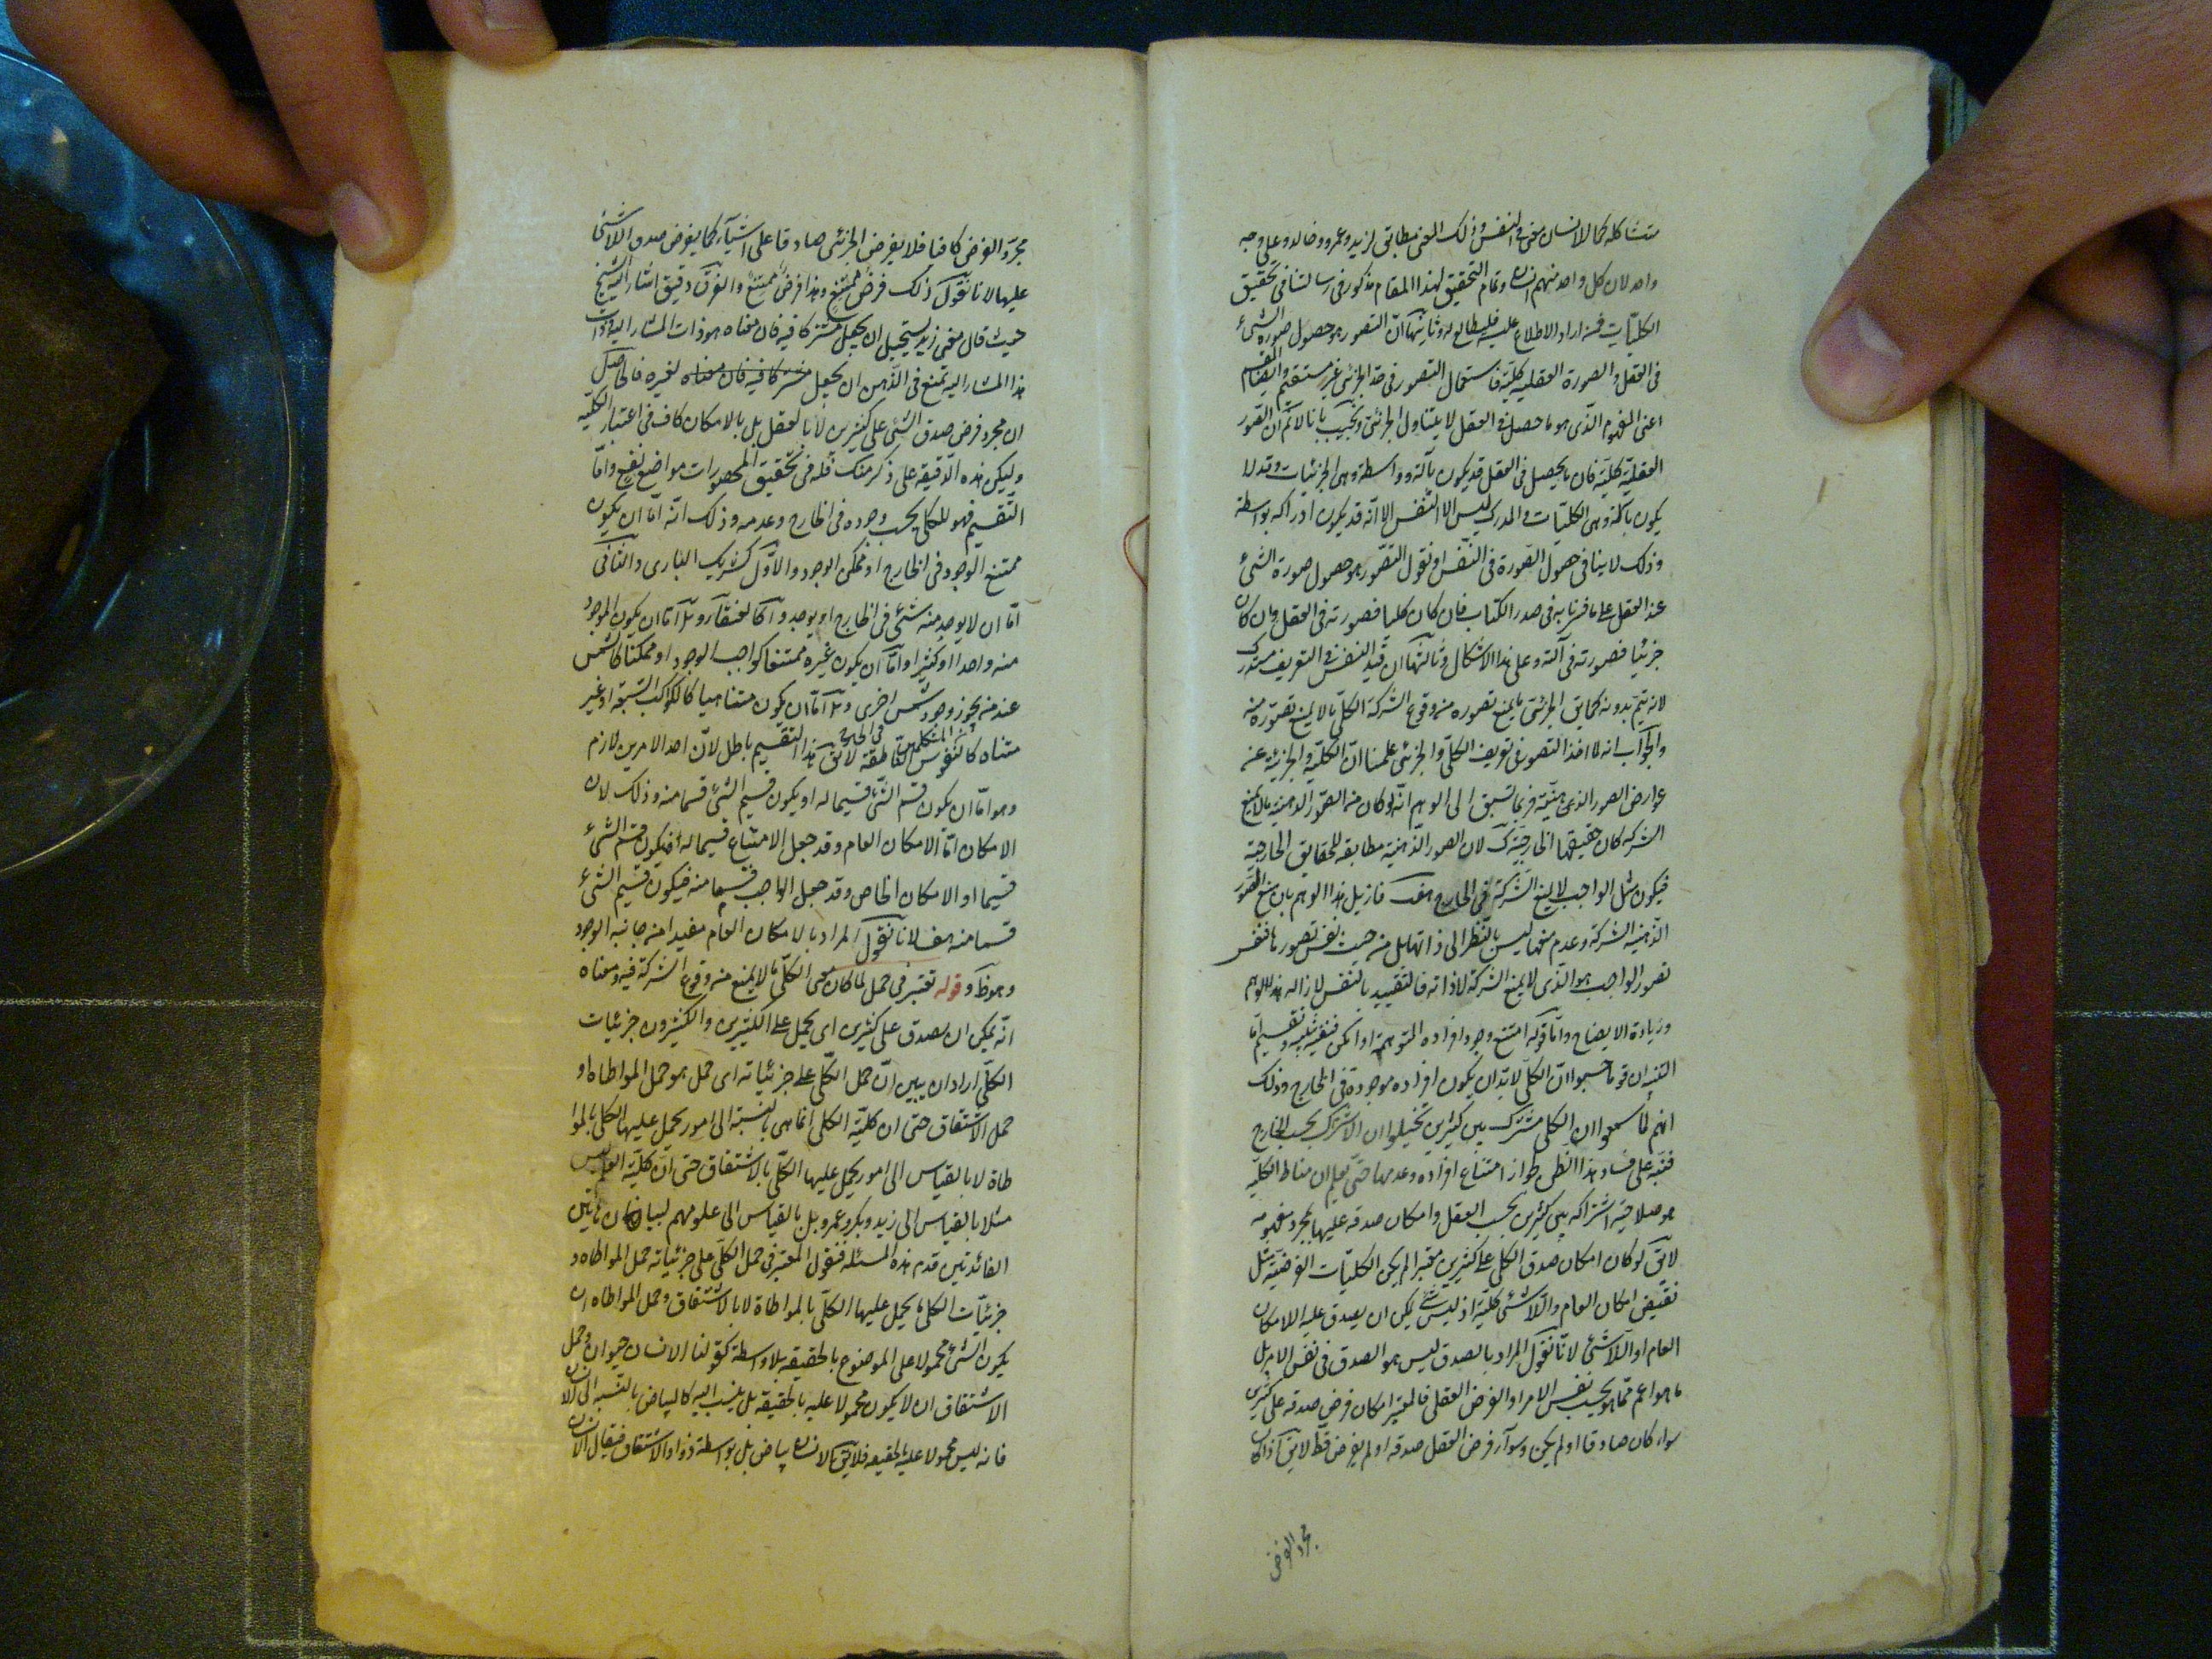 متشاكله كما للانسان معنى فى النفس وذلك المعنى مطابق لزيد وعمرو وخالد وعلى وجه
واحد لان كل واحد منهم انسان وتمام التحقيق لهذا المقام مذكور فى رسالتنا فى تحقيق
الكليّات فمن اراد الاطلاع عليه فليطالع له وثانيها انّ التصور هو حصول صورة الشئ
فى العقل والصورة العقليه كليّة فاستعمال التصور فى حد الجزئى غير مستقيم وايضا المقسم
اعنى المفهوم الّذى هو ما حصل فى العقل لا يتناول الجزئى ويجيب بانا لا نم ان الصور
العقليّة كليّة فان ما يحصل فى العقل قد يكون بآلة وواسطة وهى الجزئيات وقد لا
يكون بآلة وهى الكليّات والمدرك ليس الا النفس الا انّه قد يكون ادراكه بواسطة
وذلك لا ينافى حصول الصّورة فى النّفس او نقول التصّور هو حصول صورة الشئ
عند العقل على ما فسرنا به فى صدر الكتاب فان كان كليا فصورته فى العقل وان كان
جزئيا فصورته فى آلته وعلى هذا لا اشكال وثالثها ان قيد النفس فى التعريف مستدرك
لانه يتم بدونه كما يق الجزئى ما يمنع تصوره من وقوع الشركة الكلّى ما لا يمنع تصوّره منه
والجواب انه لما اخذ التصور فى تعريف الكلّى والجزئى علمنا انّ الكلّيّة والجزئيّة من
عوارض الصور الذهنيّة فربما تسبق الى الوهم انّه لو كان من الصوّر الذهنية ما لا يمنع
الشركه كان حقيقتها الخارجيّة كك لان الصور الذّهنية مطابقه للحقايق الخارجية
فيكون مثل الواجب لا يمنع الشّركة فى الخارج هف فازيل هذا الوهم بان منع الصّور
الذّهنيه الشركة وعدم منعها ليس بالنظر الى ذاتها بل من حيث نفس تصورها فنفس
تصور الواجب هو الّذى لا يمنع الشركة لا ذاته فالتقييد بالنفس لازاله هذا الوهم
وزيادة الايضاح وامّا قوله امتنع وجود افراده المتوهمة او امكن ففيه تنبيه وتقسيم امّا
التنبيه ان قوما حسبوا انّ الكلّى لابد ان يكون افراده موجودة فى الخارج وذلك
انهم لمّا سمعوا ان الكلى مشترك بين كثيرين تخيلوا ان الاشتراك بحسب الخارج
فنبّه على فساد هذا الظن بجواز امتناع افراده وعدمها حتى يعلم ان مناط الكليّه
هو صلاحيّة اشتراكه بين كثيرين بحسب العقل وامكان صدقه عليها بمجرد مفهومه
لا يق لو كان امكان صدق الكلى على كثيرين معتبرا لم يكن الكليّات الفرضيّة مثل
نقيض امكان العام واللاشئ كليّة اذ ليس شئ يمكن ان يصدق عليه اللاامكان
العام او اللاشئ لانّا نقول المراد بالصدق ليس هو الصدق فى نفس الامر بل
ما هو اعم ممّا هو بحسب نفس الامر او الفرض العقلى فالمعتبر امكان فرض صدقه على كثيرين
سواء كان صادقا او لم يكن وسوآء فرض العقل صدقه او لم يفرض قط لا يق اذا كان
مجرد الفرض
مجرّد الفرض كافيا فلا يفرض الجزئى صادقا على اشيآء كما يفرض صدق اللاشئ
عليها لانا نقول ذلك فرض ممتنع وهذا فرضُ ممتنع والفرق دقيق اشار اليه الشيخ
حيث قال معنى زيد يستحيل ان يجعل مشتركا فيه فان معناه هو ذات المشار اليه وذات
هذا المشار اليه تمنع فى الذّهن ان يجعل لغيره فالحاصل
ان مجرد فرض صدق الشئ على كثيرين لا العقل بل بالامكان كاف فى اعتبار الكليّه
وليكن هذه الدّقيقه على ذكر منك فله فى تحقيق المحصورات مواضع نفع وامّا
التّقسيم فهو للكلى بحسب وجوده فى الخارج وعدمه وذلك انّه امّا ان يكون
ممتنع الوجود فى الخارج او ممكن الوجود والاوّل كشريك البارى والثانى
امّا ان لا يوجد منه شئ فى الخارج او يوجد والآ كالعنقآء و امّا ان يكون الموجود
منه واحدا او كثيرا وامّا ان يكون غيره ممتنعا كواجب الوجود او ممكنا كالشمس
عند من يجوز وجود شمس اخرى و امّا ان يكون متناهيا كالكواكب السّبعة او غير
متناه كالنّفوس الناطقة لا يق هذا التقسيم باطل لانّ احد الامرين لازم
وهو امّا ان يكون قسم الشّئ قسيما له او يكون قسيم الشئ قسما منه وذلك لان
الامكان امّا الامكان العام وقد جعل الامتناع قسيما له فيكون قسم الشئ
قسيما او الامكان الخاص وقد جعل الواجب قسما منه فيكون قسيم الشئ
قسما منه هف لانا نقول المراد بالامكان العام مقيدا من جانب الوجود
وهو ظ وقوله تعتبر فى حمل لما كان معنى الكلّى ما لا يمنع من وقوع الشركة فيه ومعناه
انّه يمكن ان يصدق على كثيرين اى يحمل على الكثيرين والكثيرون جزئيات
الكلّى اراد ان يبين انّ حمل الكلّى على جزئياته اى حمل هو حمل المواطاة او
حمل الاشتقاق حتى ان كليّة الكلى انما هى بالنسبة الى امور يحمل عليها الكلى بالموا
طاة لا بالقياس الى امور يحمل عليها الكلّى بالاشتقاق حتى انّ كليّة العلم ليس
مثلا بالقياس الى زيد وبكر وعمرو بل بالقياس الى علومهم لبيان هاتين
الفائدتين قدم هذه المسئله فنقول المعتبر فى حمل الكلّى على جزئياته حمل المواطاه و
جزئيّات الكلى ما يحمل عليها الكلّى بالمواطاة لا بالاشتقاق وحمل المواطاه ان
يكون الشئ محمولا على الموضوع بالحقيقه بلا واسطة كقولنا الانسان حيوان وحمل
الاشتقاق ان لا يكون محمولا عليه بالحقيقه بل ينسب اليه كالبياض بالنسبه الى الانسان
فانه ليس محمولا عليه بالحقيقه فلا يق الانسان بياض بل بواسطة ذو او الاشتقاق فيقال الانسان